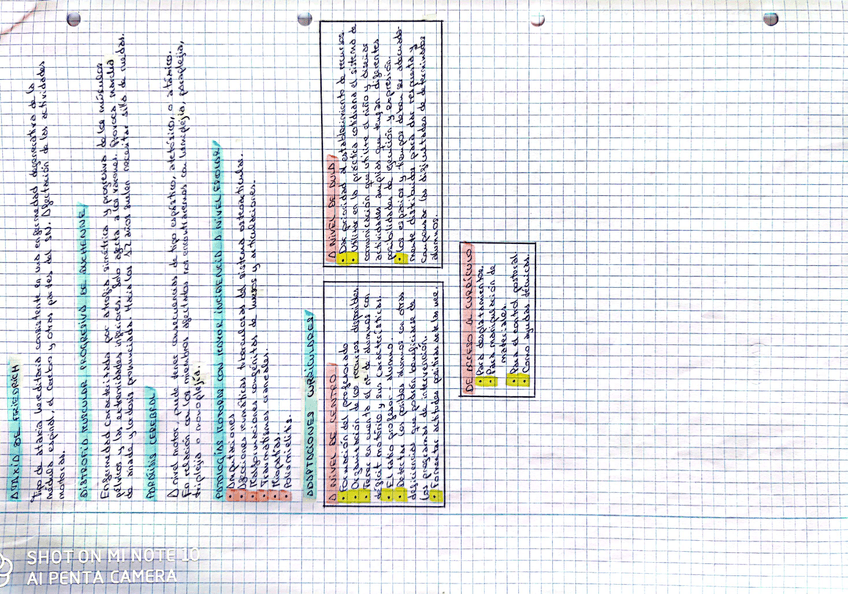 ATAXIA DE FRIEDRICH
Tipo de ataxia hereditaria consistente en una enfermedad degenerativa de la
médula espinal, el cerebro y otras partes del SN. Afectación de las actividades
motoras.
DISTROFIA MUSCULAR PROGRESIVA DE DUCHENNE
Enfermedad caracterizada por atrofia simétrica y progresiva de los músculos
pélvicos y las extremidades inferiores. Solo afecta a los varones. Provoca marcha
de ánade y lordosis pronunciada. Hacia los 12 años suelen necesitar silla de ruedas.
PARÁLISIS CEREBRAL
A nivel motor, puede tener consecuencias de tipo espástico, atetósico, o atáxico.
En relación con los miembros afectados nos encontraremos con hemiplejia, paraplejia,
triplejia o monoplejia.
PATOLOGÍAS MOTORAS CON MAYOR INCIDENCIA A NIVEL ESCOLAR
• Amputaciones
• Afecciones reumáticas tuberculosas del sistema osteoarticular.
• Malformaciones congénitas de huesos y articulaciones.
• Traumatismos craneales.
• Miopatías.
• Poliomielitis.
ADAPTACIONES CURRICULARES
A NIVEL DE CENTRO
• Formación del profesorado
• Organización de los recursos disponibles
• Tener en cuenta el nº de alumnos con
déficit motórico y sus características.
• El ratio profesor-alumno.
• Detectar los posibles alumnos con otras
deficiencias que podrían beneficiarse de
los programas de intervención.
• Fomentar actitudes positivas ante la nee.
A NIVEL DE AULA
• Dar prioridad al establecimiento de recursos
• Utilizar en la práctica cotidiana el sistema de
comunicación que utilice el niño y diseñar
actividades amplias que tengan diferentes
posibilidades de ejecución y expresión.
• Los espacios y tiempos deben ser adecuada-
mente distribuidos para dar respuesta y
compensar las dificultades de determinados
alumnos.
DE ACCESO AL CURRÍCULO
• Para desplazamientos.
• Para manipulación de
materiales.
• Para el control postural
• Como ayudas técnicas.
SHOT ON MI NOTE 10
AI PENTA CAMERA